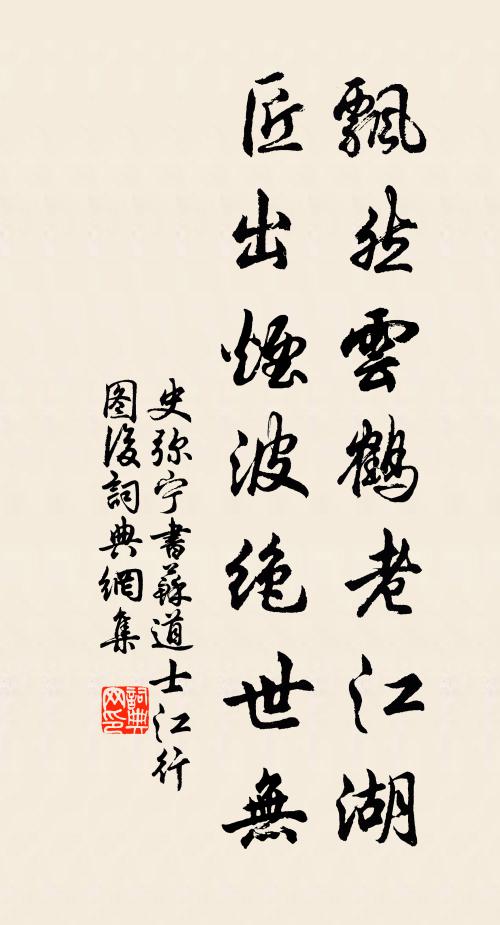 飄然雲鶴老江湖
匠出煙波絶世無
史弥宁書蘇道士江行
图後詞典網集
詞典网印